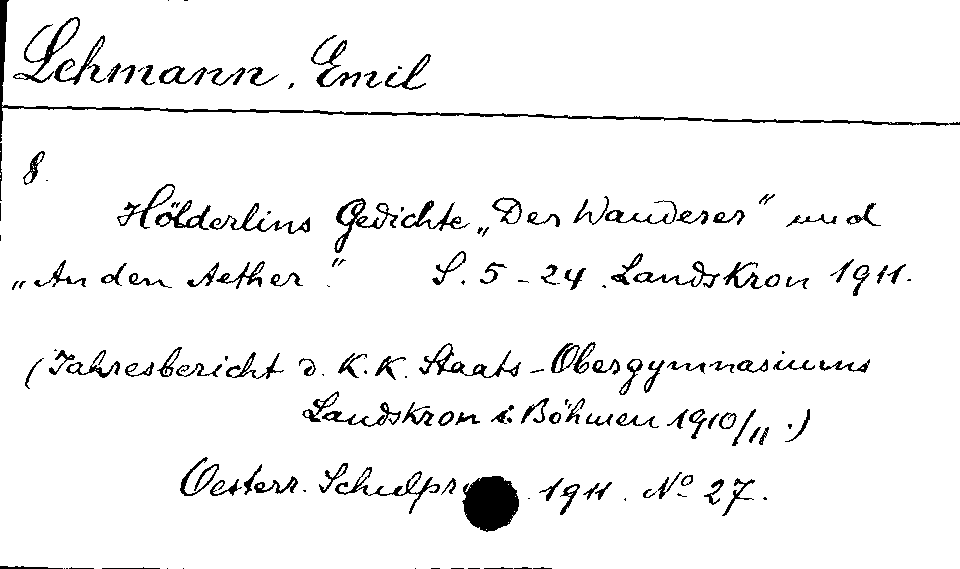 Lehmann, Emil
8.
Hölderlins Gedichte „Der Wanderer" und
„An den Aether." S. 5-24. Landskron 1911.
(Jahresbericht d. K. K. Staats-Obergymnasiums
Landskron i. Böhmen 1910/11.)
Oesterr. 1911. No 27.